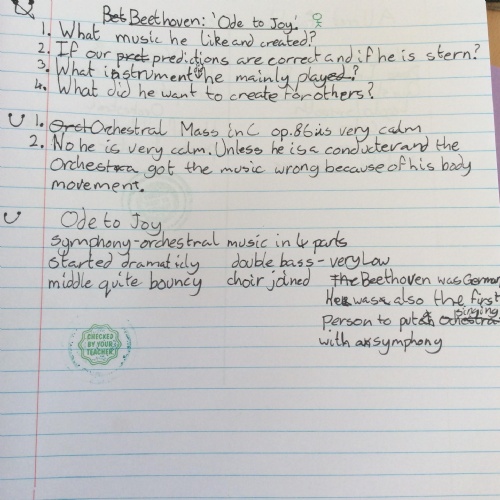 Beethoven: 'Ode to Joy'
1. What music he like and created?
2. If our predictions are correct and if he is stern?
3. What instrument he mainly played?
4. What did he want to create for others?
1. Orchestral Mass in C op.86 is very calm
2. No he is very calm. Unless he is a conducter and the
Orchestra got the music wrong because of his body
movement.
Ode to Joy
symphony-orchestral music in 4 parts
started dramaticly double bass - very low
middle quite bouncy choir joined Beethoven was German
He was also the first
person to put singing
with a symphony
CHECKED
BY YOUR
TEACHER